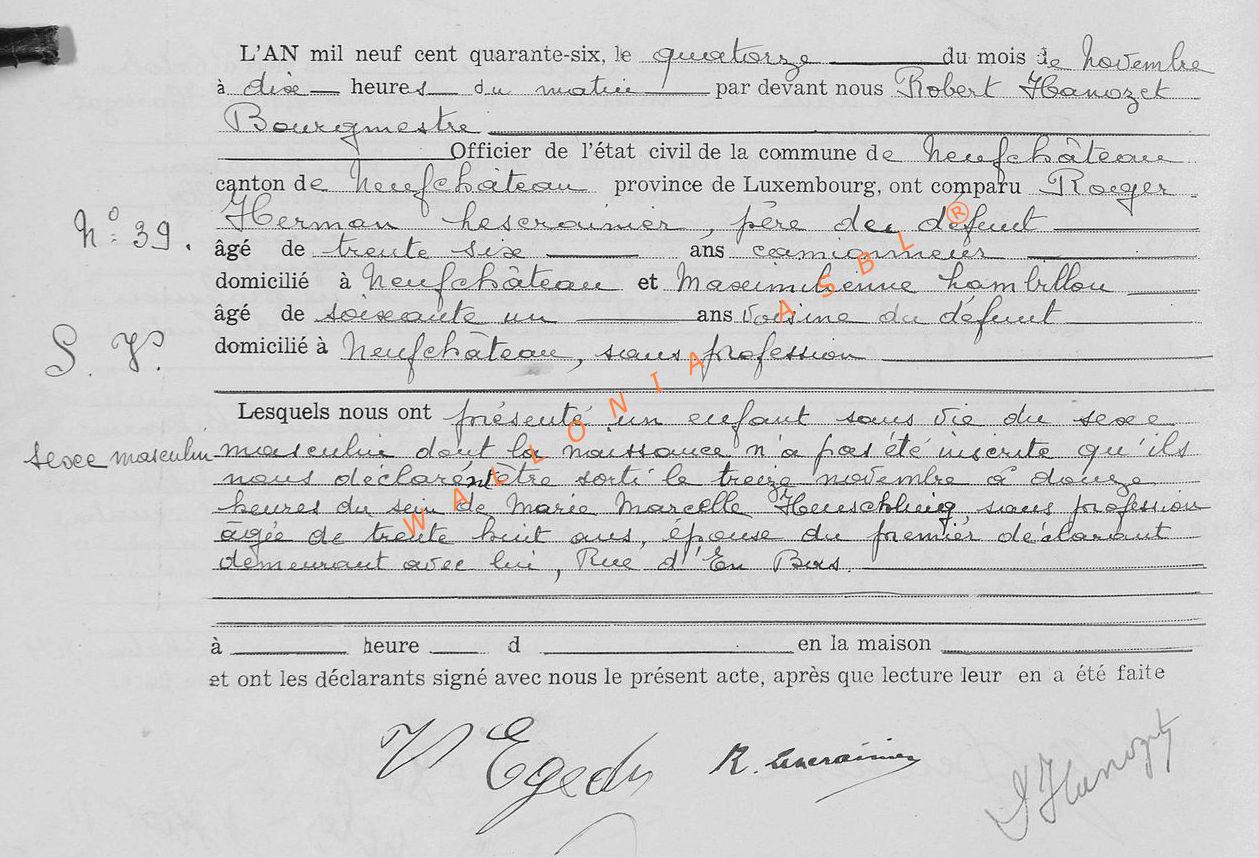 L'AN mil neuf cent quarante-six, le quatorze du mois de Novembre
à dix heures du matin par devant nous Robert Hanozet
Bourgmestre
Officier de l'état civil de la commune de Neufchâteau
canton de Neufchâteau province de Luxembourg, ont comparu Roger
N° 39.
Herman Lescrainier, père du défunt
âgé de trente six ans camionneur
domicilié à Neufchâteau et Maximilienne Lambillou
âgé de soixante un ans voisine du défunt
S. V.
domicilié à Neufchâteau, sans profession
Lesquels nous ont présenté un enfant sans vie du sexe
sexe masculin
masculin dont la naissance n'a pas été inscrite qu'ils
nous déclarent être sorti le treize novembre à douze
heures du sein de Marie Marcelle Henschling, sans profession
âgée de trente huit ans, épouse du premier déclarant
demeurant avec lui, Rue d'En Bas.
à heure d en la maison
et ont les déclarants signé avec nous le présent acte, après que lecture leur en a été faite
R. Lescrainier
Hanozet
WALLONIA ASBL ®